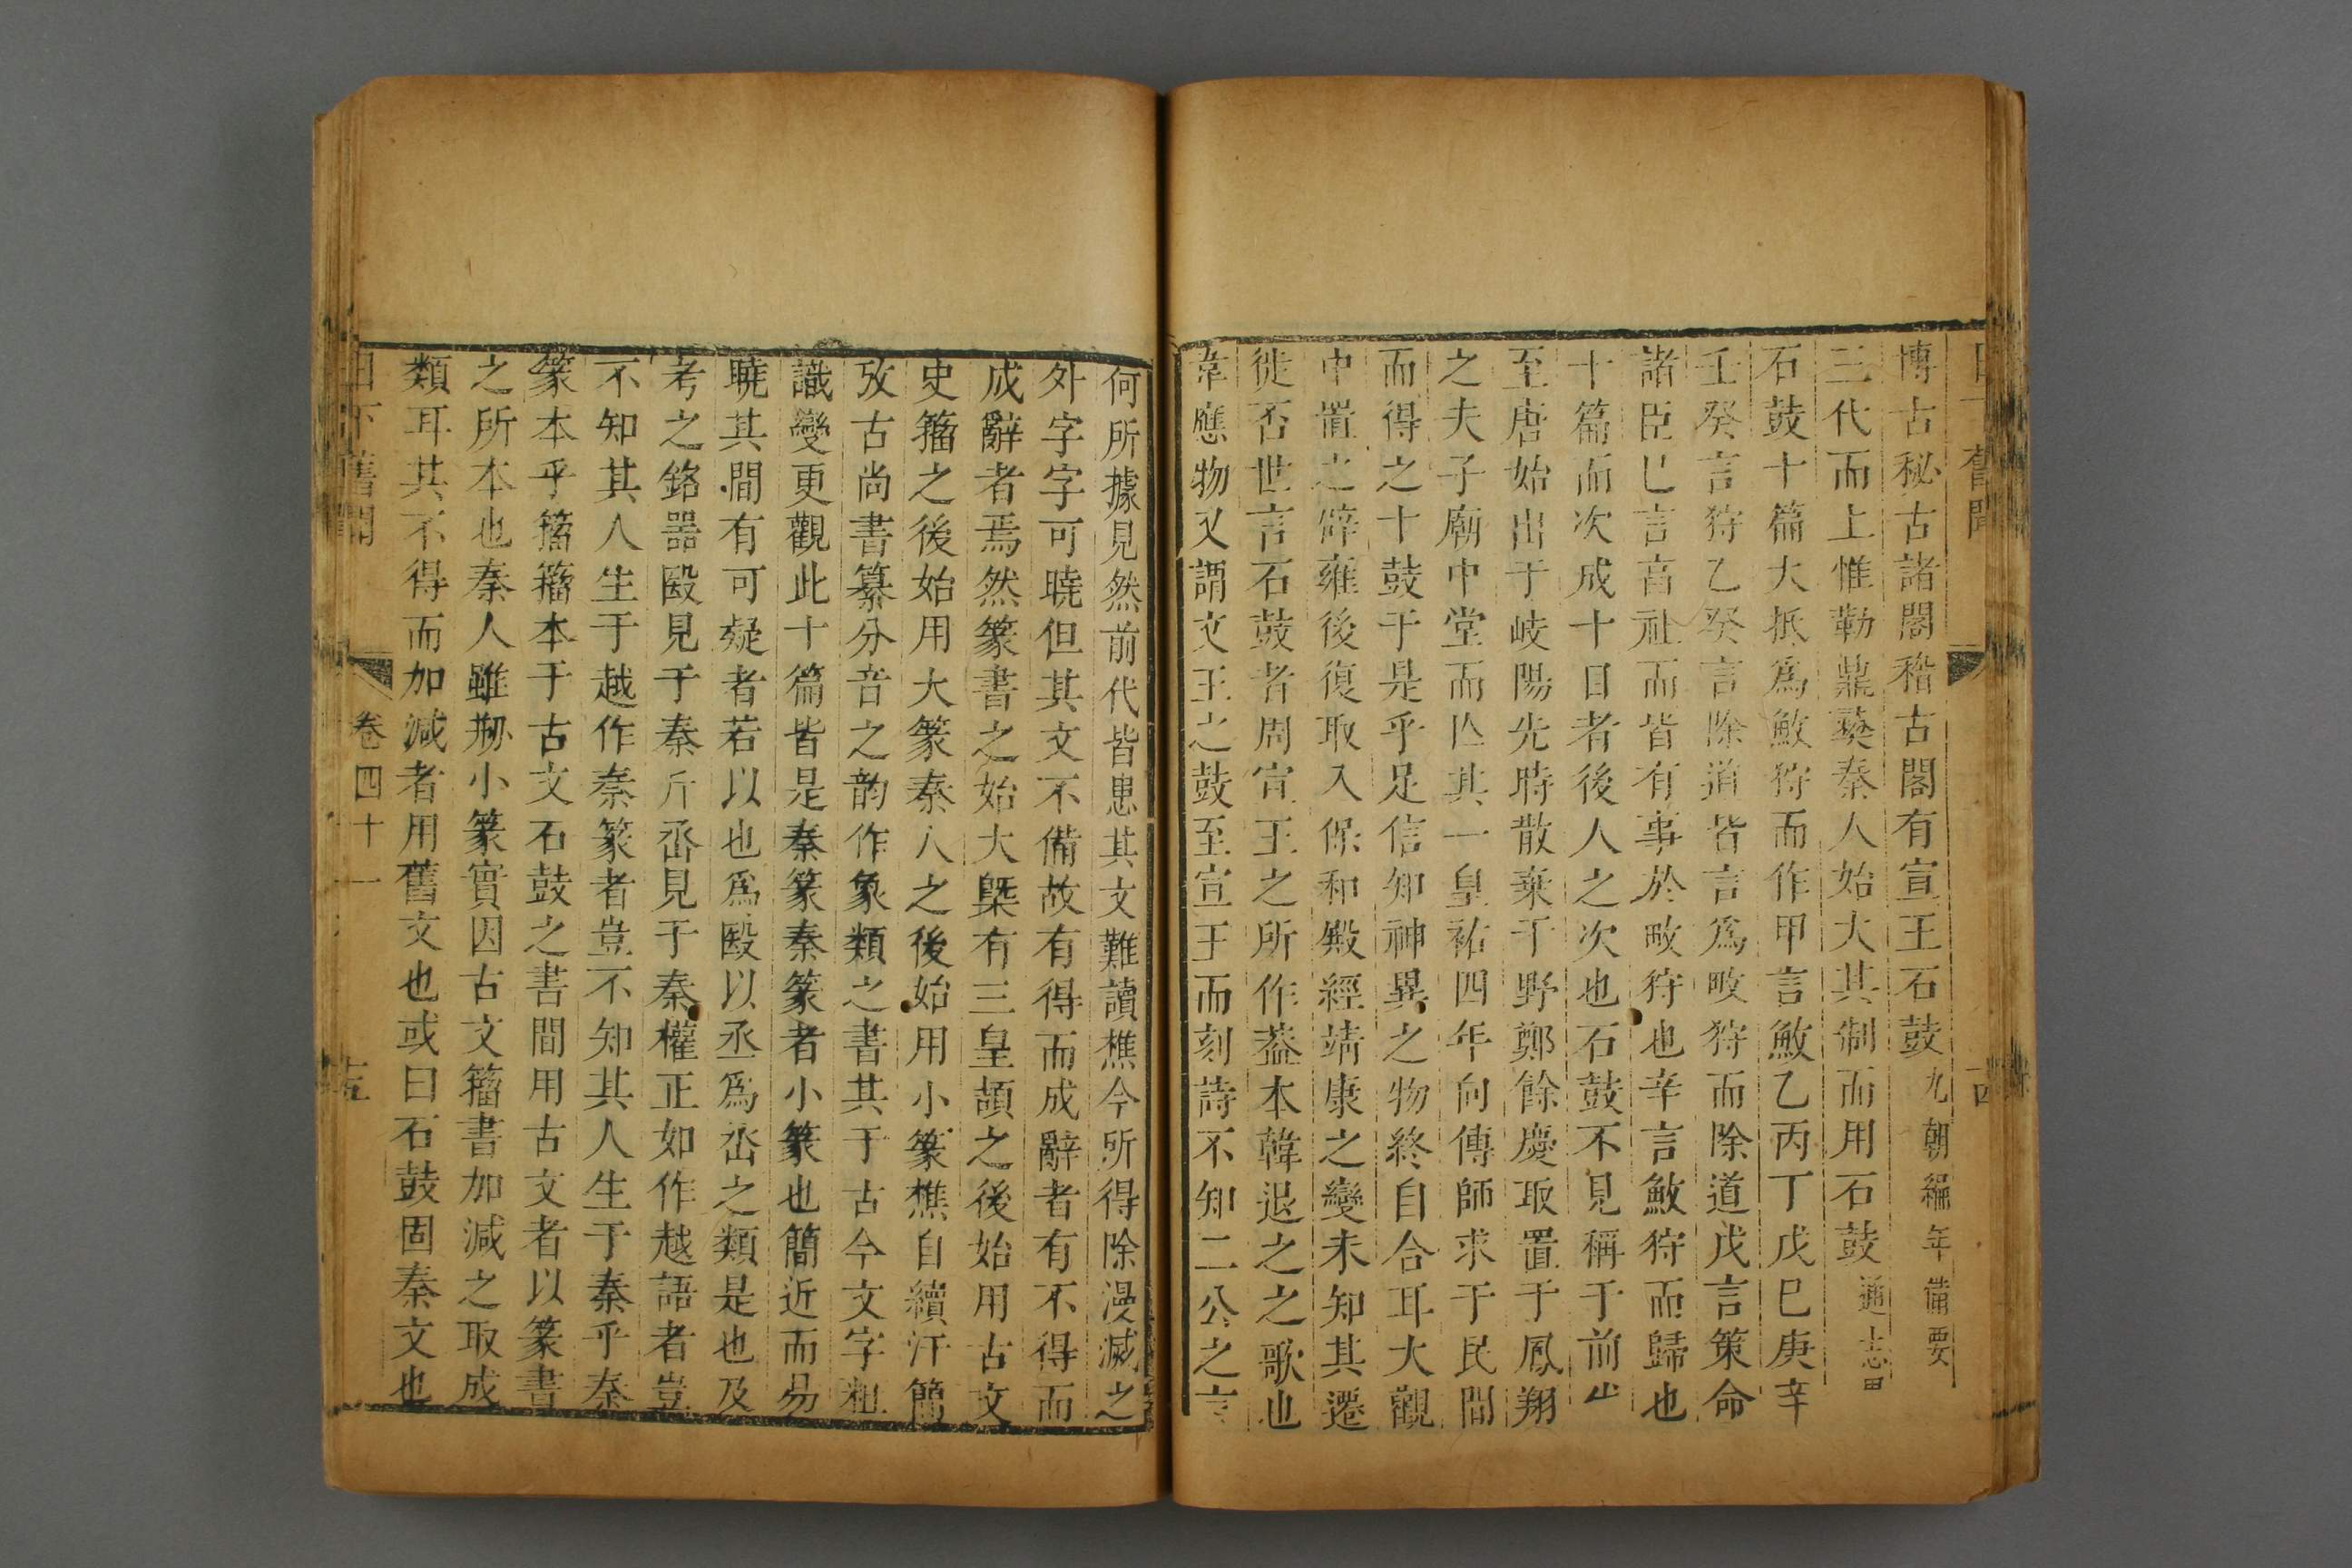 舊聞
博古秘古諸閣稽古閣有宣王石鼓九朝編年備要
三代而上惟勒鼎彝秦人始大其制而用石鼓通志
石鼓十篇大抵爲䱷狩而作甲言䱷乙丙丁戊巳庚辛
壬癸言狩乙癸言除道皆言爲畋狩而除道戊言策命
諸臣巳言音祉而皆有事於畋狩也辛言䱷狩而歸也
十篇而次成十目者後人之次也石鼓不見稱于前
至唐始出于岐陽先時散棄于野鄭餘慶取置于鳳翔
之夫子廟中堂而亾其一皇祐四年向傳師求于民間
而得之十鼓于是乎足信知神異之物終自合耳大觀
中置之辟雍後復取入保和殿經靖康之變未知其遷
徙否世言石鼓者周宣王之所作葢本韓退之之歌也
韋應物又謂文王之鼓至宣王而刻詩不知二公之言
何所據見然前代皆患其文難讀樵今所得除漫滅之
外字字可曉但其文不備故有得而成辭者有不得而
成辭者焉然篆書之始大槩有三皇頡之後始用古文
史籀之後始用大篆秦人之後始用小篆樵自續汗簡
攷古尚書纂分音之韵作象類之書其于古今文字粗
識變更觀此十篇皆是秦篆秦篆者小篆也簡近而易
曉其間有可疑者若以也爲殹以丞爲𠀼之類是也及
考之銘器殹見于秦斤𠀼見于秦權正如作越語者豈
不知其人生于越作秦篆者豈不知其人生于秦乎秦
篆本乎籀籀本于古文石鼓之書間用古文者以篆書
之所本也秦人雖剙小篆實因古文籀書加減之取成
類耳其不得而加減者用舊文也或曰石鼓固秦文也
日下舊聞 卷四十一 十五